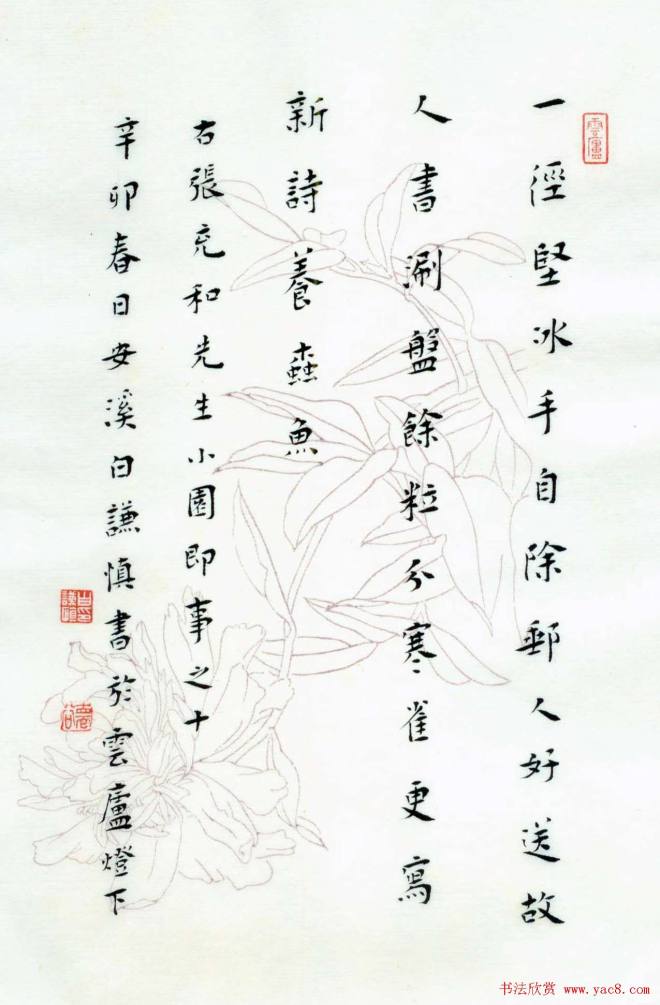 一徑堅冰手自除郵人好送故
人書涮盤餘粒分寒雀更寫
新詩養蠹魚
右張充和先生小園即事之十
辛卯春日安溪白謙慎書於雲廬燈下
雲廬
书法欣赏 www.yac8.com